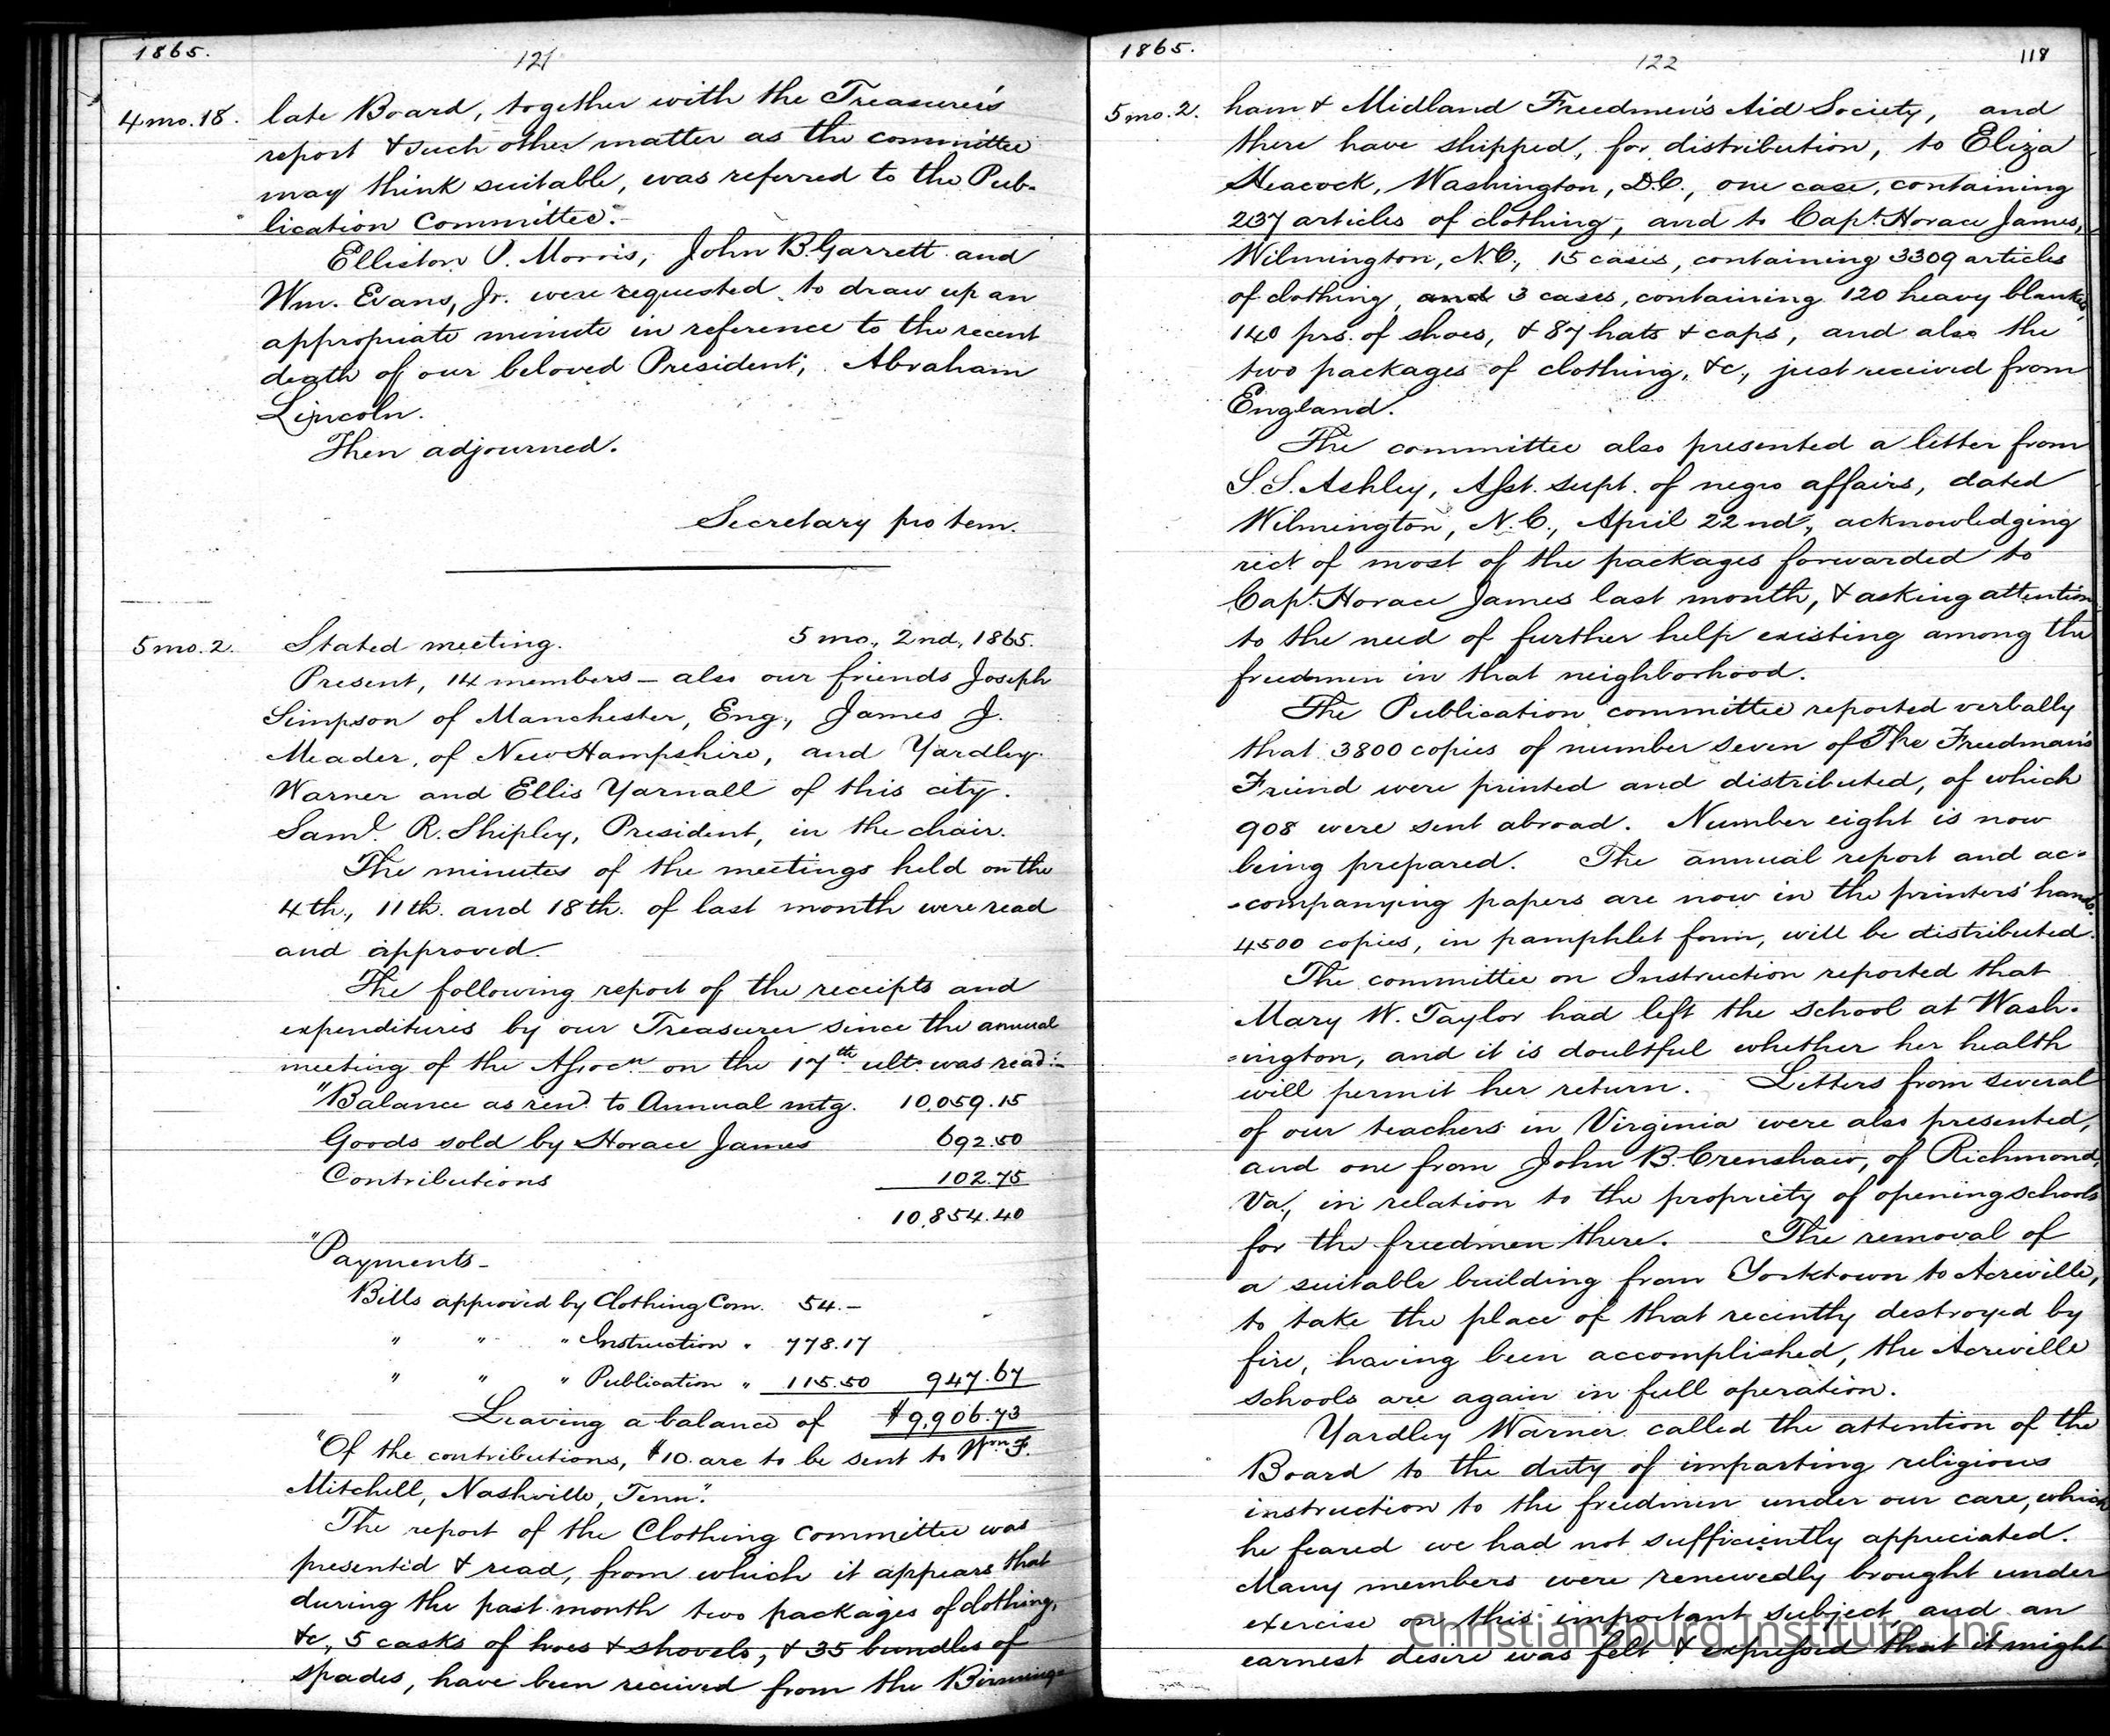 1865.
121
4 mo. 18. late Board, together with the Treasurer's
report & such other matter as the committee
may think suitable, was referred to the Pub-
lication Committee.
Elliston P. Morris, John B. Garrett and
Wm. Evans, Jr. were requested to draw up an
appropriate minute in reference to the recent
death of our beloved President, Abraham
Lincoln.
Then adjourned.
Secretary pro tem.
5 mo. 2. Stated meeting. 5 mo., 2nd, 1865.
Present, 14 members – also our friends Joseph
Simpson of Manchester, Eng., James J.
Meader, of New Hampshire, and Yardley
Warner and Ellis Yarnall of this city.
Saml. R. Shipley, President, in the chair.
The minutes of the meetings held on the
4th., 11th. and 18th. of last month were read
and approved.
The following report of the receipts and
expenditures by our Treasurer since the annual
meeting of the Assocn. on the 17th ult. was read:–
"Balance as rend. to Annual mtg. 10,059.15
Goods sold by Horace James 692.50
Contributions 102.75
10,854.40
"Payments –
Bills approved by Clothing Com. 54.–
" " " Instruction " 778.17
" " " Publication " 115.50 947.67
Leaving a balance of $9,906.73
"Of the contributions, $10. are to be sent to Wm. F.
Mitchell, Nashville, Tenn."
The report of the Clothing Committee was
presented & read, from which it appears that
during the past month two packages of clothing,
&c., 5 casks of hoes & shovels, & 35 bundles of
spades, have been received from the Birming-
1865.
122
118
5 mo. 2. ham & Midland Freedmen's Aid Society, and
there have shipped, for distribution, to Eliza
Heacock, Washington, D.C., one case, containing
237 articles of clothing, and to Capt. Horace James,
Wilmington, N.C., 15 cases, containing 3309 articles
of clothing, and 3 cases, containing 120 heavy blankets,
140 prs. of shoes, & 87 hats & caps, and also the
two packages of clothing, &c., just received from
England.
The committee also presented a letter from
S. S. Ashley, Asst. supt. of negro affairs, dated
Wilmington, N.C., April 22nd, acknowledging
rect. of most of the packages forwarded to
Capt. Horace James last month, & asking attention
to the need of further help existing among the
freedmen in that neighborhood.
The Publication committee reported verbally
that 3800 copies of number seven of The Freedman's
Friend were printed and distributed, of which
908 were sent abroad. Number eight is now
being prepared. The annual report and ac-
-companying papers are now in the printers' hands.
4500 copies, in pamphlet form, will be distributed.
The committee on Instruction reported that
Mary W. Taylor had left the school at Wash-
=ington, and it is doubtful whether her health
will permit her return. Letters from several
of our teachers in Virginia were also presented,
and one from John B. Crenshaw, of Richmond,
Va., in relation to the propriety of opening schools
for the freedmen there. The removal of
a suitable building from Yorktown to Acreville,
to take the place of that recently destroyed by
fire, having been accomplished, the Acreville
schools are again in full operation.
Yardley Warner called the attention of the
Board to the duty of imparting religious
instruction to the freedmen under our care, which
he feared we had not sufficiently appreciated.
Many members were renewedly brought under
exercise on this important subject, and an
earnest desire was felt & expressed that it might
Christiansburg Institute, Inc.